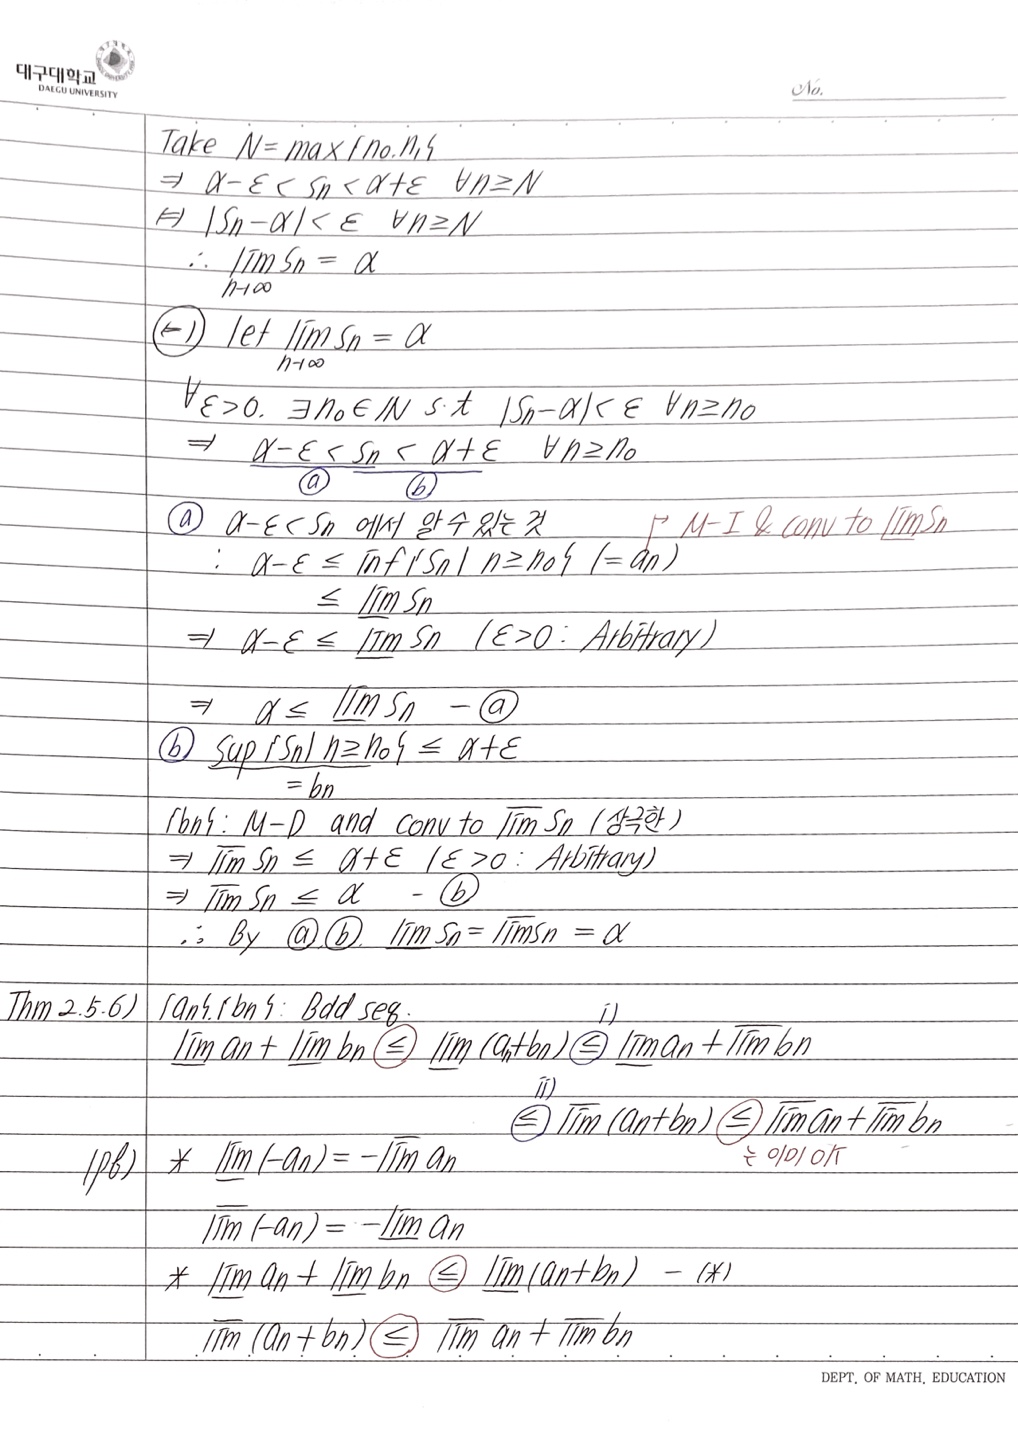 대구대학교
DAEGU UNIVERSITY
No.
Take N = max{n₀. n₁}
⇒ α-ε < Sn < α+ε ∀n≥N
⇔ |Sn-α| < ε ∀n≥N
∴ lim Sn = α
n→∞
(⇐) let lim Sn = α
n→∞
∀ε>0. ∃n₀∈ℕ s.t |Sn-α| < ε ∀n≥n₀
⇒ α-ε < Sn < α+ε ∀n≥n₀
ⓐ ⓑ
ⓐ α-ε < Sn 에서 알 수 있는 것 ┌→ M-I & conv to l̲i̲m̲ Sn
: α-ε ≤ inf{Sn| n≥n₀} (= an)
≤ l̲i̲m̲ Sn
⇒ α-ε ≤ l̲i̲m̲ Sn (ε>0 : Arbitrary)
⇒ α ≤ l̲i̲m̲ Sn - ⓐ
ⓑ sup{Sn| n≥n₀} ≤ α+ε
= bn
{bn}: M-D and conv to l̅i̅m̅ Sn (상극한)
⇒ l̅i̅m̅ Sn ≤ α+ε (ε>0 : Arbitrary)
⇒ l̅i̅m̅ Sn ≤ α - ⓑ
∴ By ⓐ,ⓑ l̲i̲m̲ Sn = l̅i̅m̅ Sn = α
Thm 2.5.6) {an}.{bn}: Bdd seq.
i)
l̲i̲m̲ an + l̲i̲m̲ bn ≤ l̲i̲m̲ (an+bn) ≤ l̲i̲m̲ an + l̅i̅m̅ bn
ii)
≤ l̅i̅m̅ (an+bn) ≤ l̅i̅m̅ an + l̅i̅m̅ bn
는 이미 OK
(pf) * l̲i̲m̲ (-an) = -l̅i̅m̅ an
l̅i̅m̅ (-an) = -l̲i̲m̲ an
* l̲i̲m̲ an + l̲i̲m̲ bn ≤ l̲i̲m̲ (an+bn) - (*)
l̅i̅m̅ (an+bn) ≤ l̅i̅m̅ an + l̅i̅m̅ bn
DEPT. OF MATH. EDUCATION